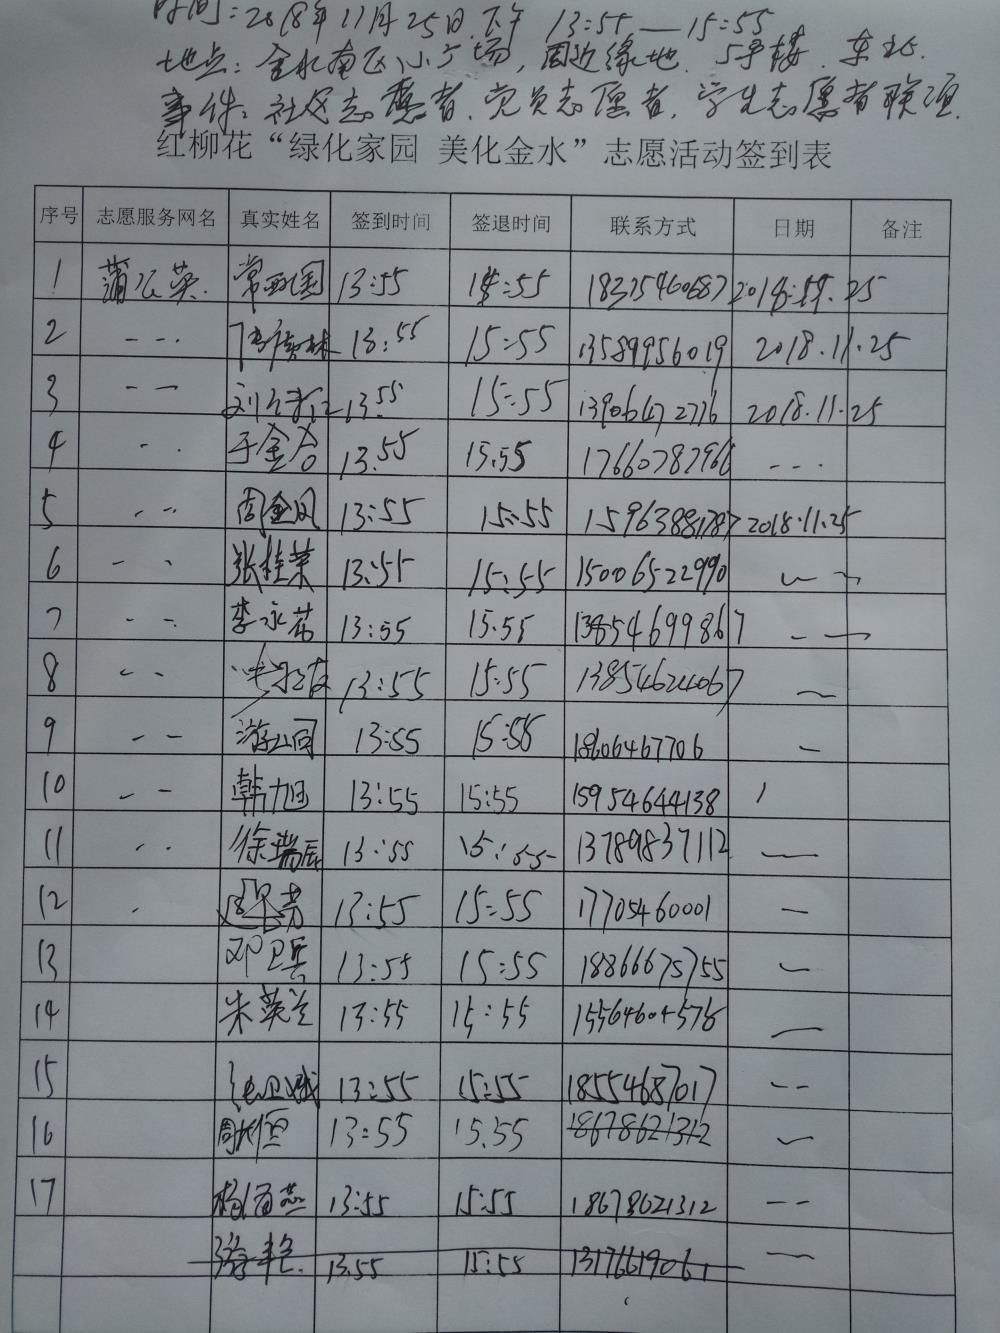 时间：2018年11月25日下午 13:55—15:55
地点：金水南区小广场，周边绿地．5号楼．东北．
事件：社区志愿者．党员志愿者．学生志愿者联
红柳花“绿化家园 美化金水”志愿活动签到表
序号 志愿服务网名 真实姓名 签到时间 签退时间 联系方式 日期 备注
1 蒲公英． 常 国 13:55 15:55 18325460687 25
2 --- 13:55 15:55 13589956019 2018.11.25
3 -- 刘 13:55 15:55 13906472776 2018.11.25
4 -- 于金 13.55 15.55 17660787966 ---
5 -- 周金凤 13:55 15:55 15963881787 2018.11.25
6 -- 张桂荣 13:55 15:55 15006522990 --
7 -- 李永 13:55 15.55 13854699867 --
8 -- 13:55 15:55 13854624067 -
9 -- 游 13:55 15:55 18606467706 -
10 -- 韩旭 13:55 15:55 15954644138
11 -- 徐瑞辰 13:55 15:55 13789837112 -
12 - 芳 13:55 15:55 17705460001 -
13 邓卫兵 13:55 15:55 18866675755 -
14 朱英兰 13:55 15:55 15564604576 -
15 13:55 15:55 18554687017 --
16 周 恒 13:55 15.55 18678621312 -
17 杨 燕 13:55 15:55 18678621312 --
13.55 15:55 13176619061 -